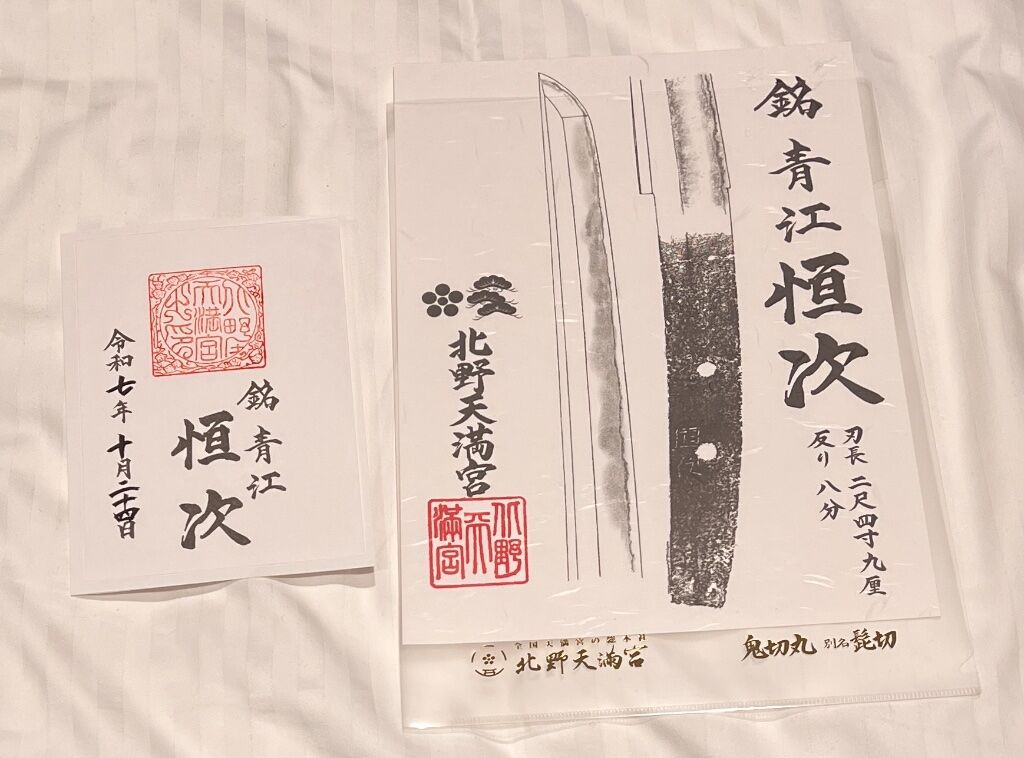 北野天満宮
銘 青江
恒次
令和七年 十月二十四日
銘 青江
恒次
刃長 二尺四寸九厘
反り 八分
北野天満宮
北野天満宮
全国天満宮の総本社
北野天満宮
鬼切丸 別名 髭切